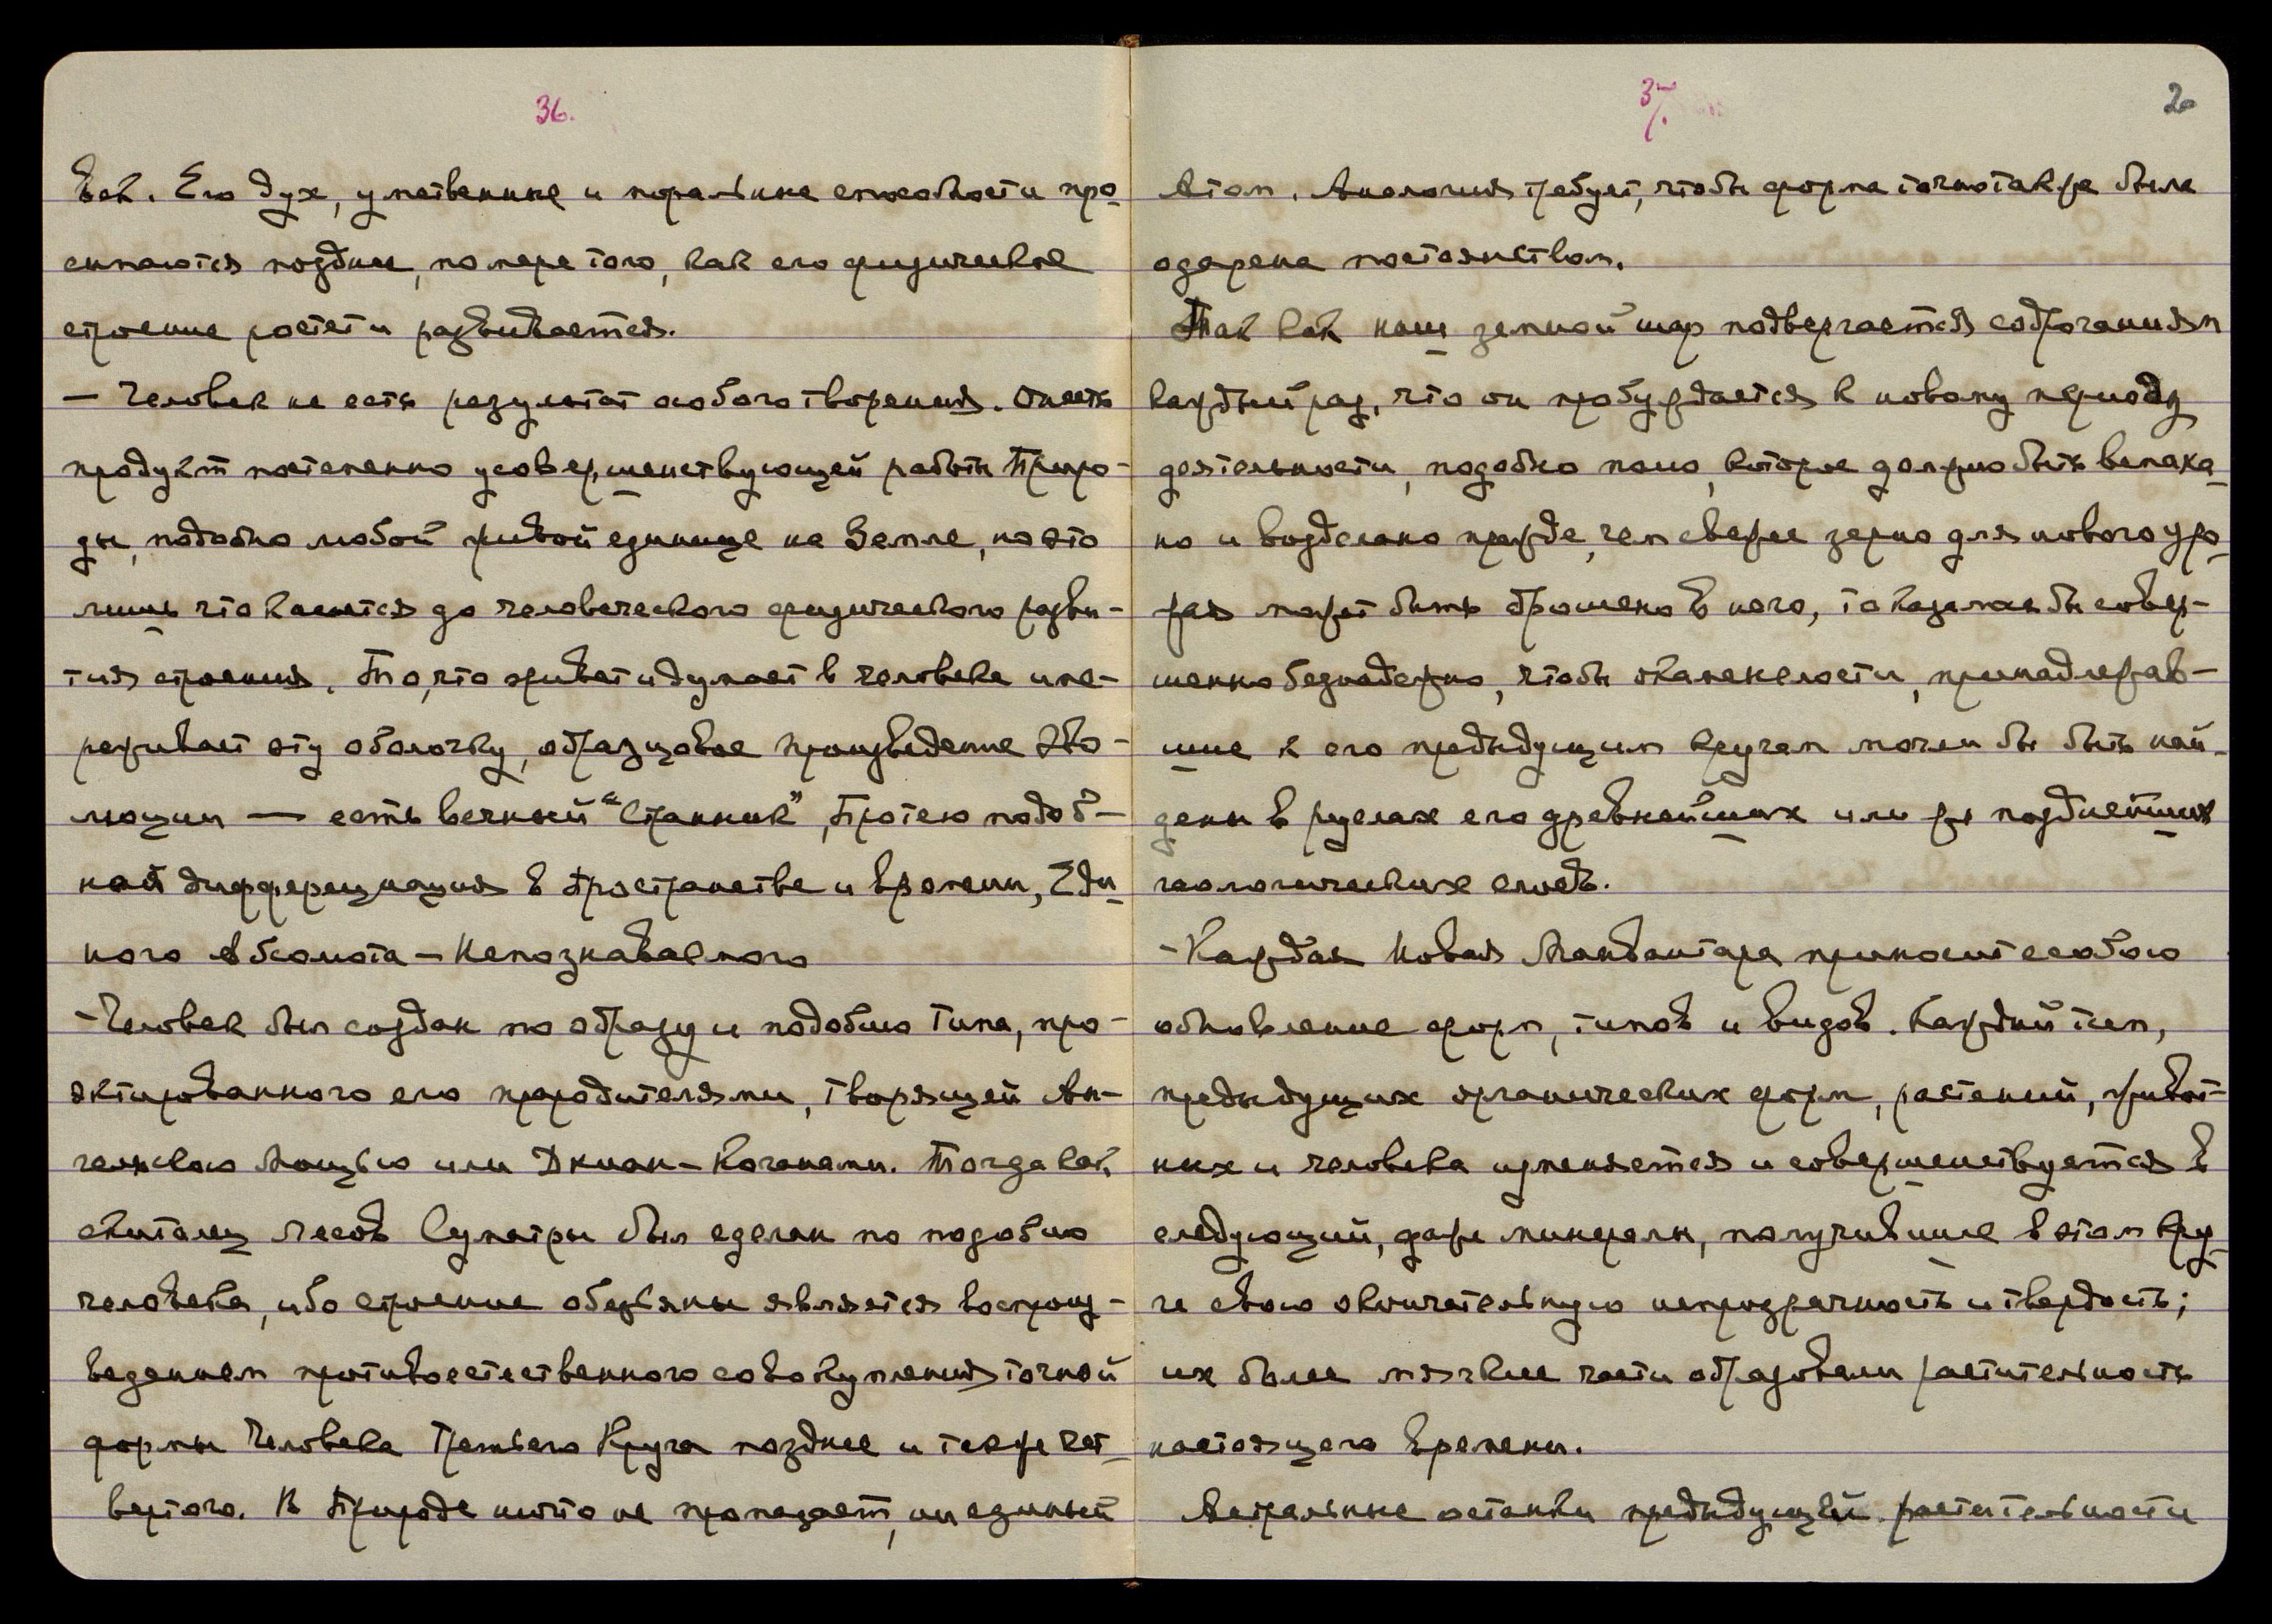 36.
век. Его дух, умственные и моральные способности про-
сыпаются позднее, по мере того, как его физическое
строение растет и развивается.
— Человек не есть результат особого творения. Он есть
продукт постепенно усовершенствующей работы Приро-
ды, подобно любой живой единице на Земле, но это
лишь что касается до человеческого физического разви-
тия строения. То, что живет и думает в человеке и пе-
реживает эту оболочку, образцовое произведение Эво-
люции — есть вечный "Странник", Протею подоб-
ная дифференциация в Пространстве и Времени, Еди-
ного Абсолюта – Непознаваемого
- Человек был создан по образу и подобию типа, про-
эктированного его прародителями, творящей Ан-
гельскою Мощью или Дхиан-Коганами. Тогда как
скиталец лесов Суматры был сделан по подобию
человека, ибо строение обезьяны является воспроиз-
ведением противоестественного совокупления точной
формы Человека Третьего Круга позднее и также Чет-
вертого. В Природе ничто не пропадает, ни единый
37.
20
Атом. Аналогия требует, чтобы форма точно также была
одарена постоянством.
Так как наш земной шар подвергается содроганиям
каждый раз, что он пробуждается к новому периоду
деятельности, подобно полю, которое должно быть вспаха-
но и возделано прежде, чем свежее зерно для нового уро-
жая может быть брошено в него, то казалось бы совер-
шенно безнадежно, чтобы окаменелости, принадлежав-
шие к его предыдущим кругам могли бы быть най-
дены в
его древнейших или же позднейших
геологических слоев.
- Каждая Новая Манвантара приносит с собою
обновление форм, типов и видов. Каждый тип,
предыдущих органических форм, растений, живот-
ных и человека изменяется и совершенствуется в
следующий, даже минералы, получившие в этом Кру-
ге свою окончательную непрозрачность и твердость;
их более мягкие части образовали растительность
настоящего времени.
Астральные останки предыдущей растительности